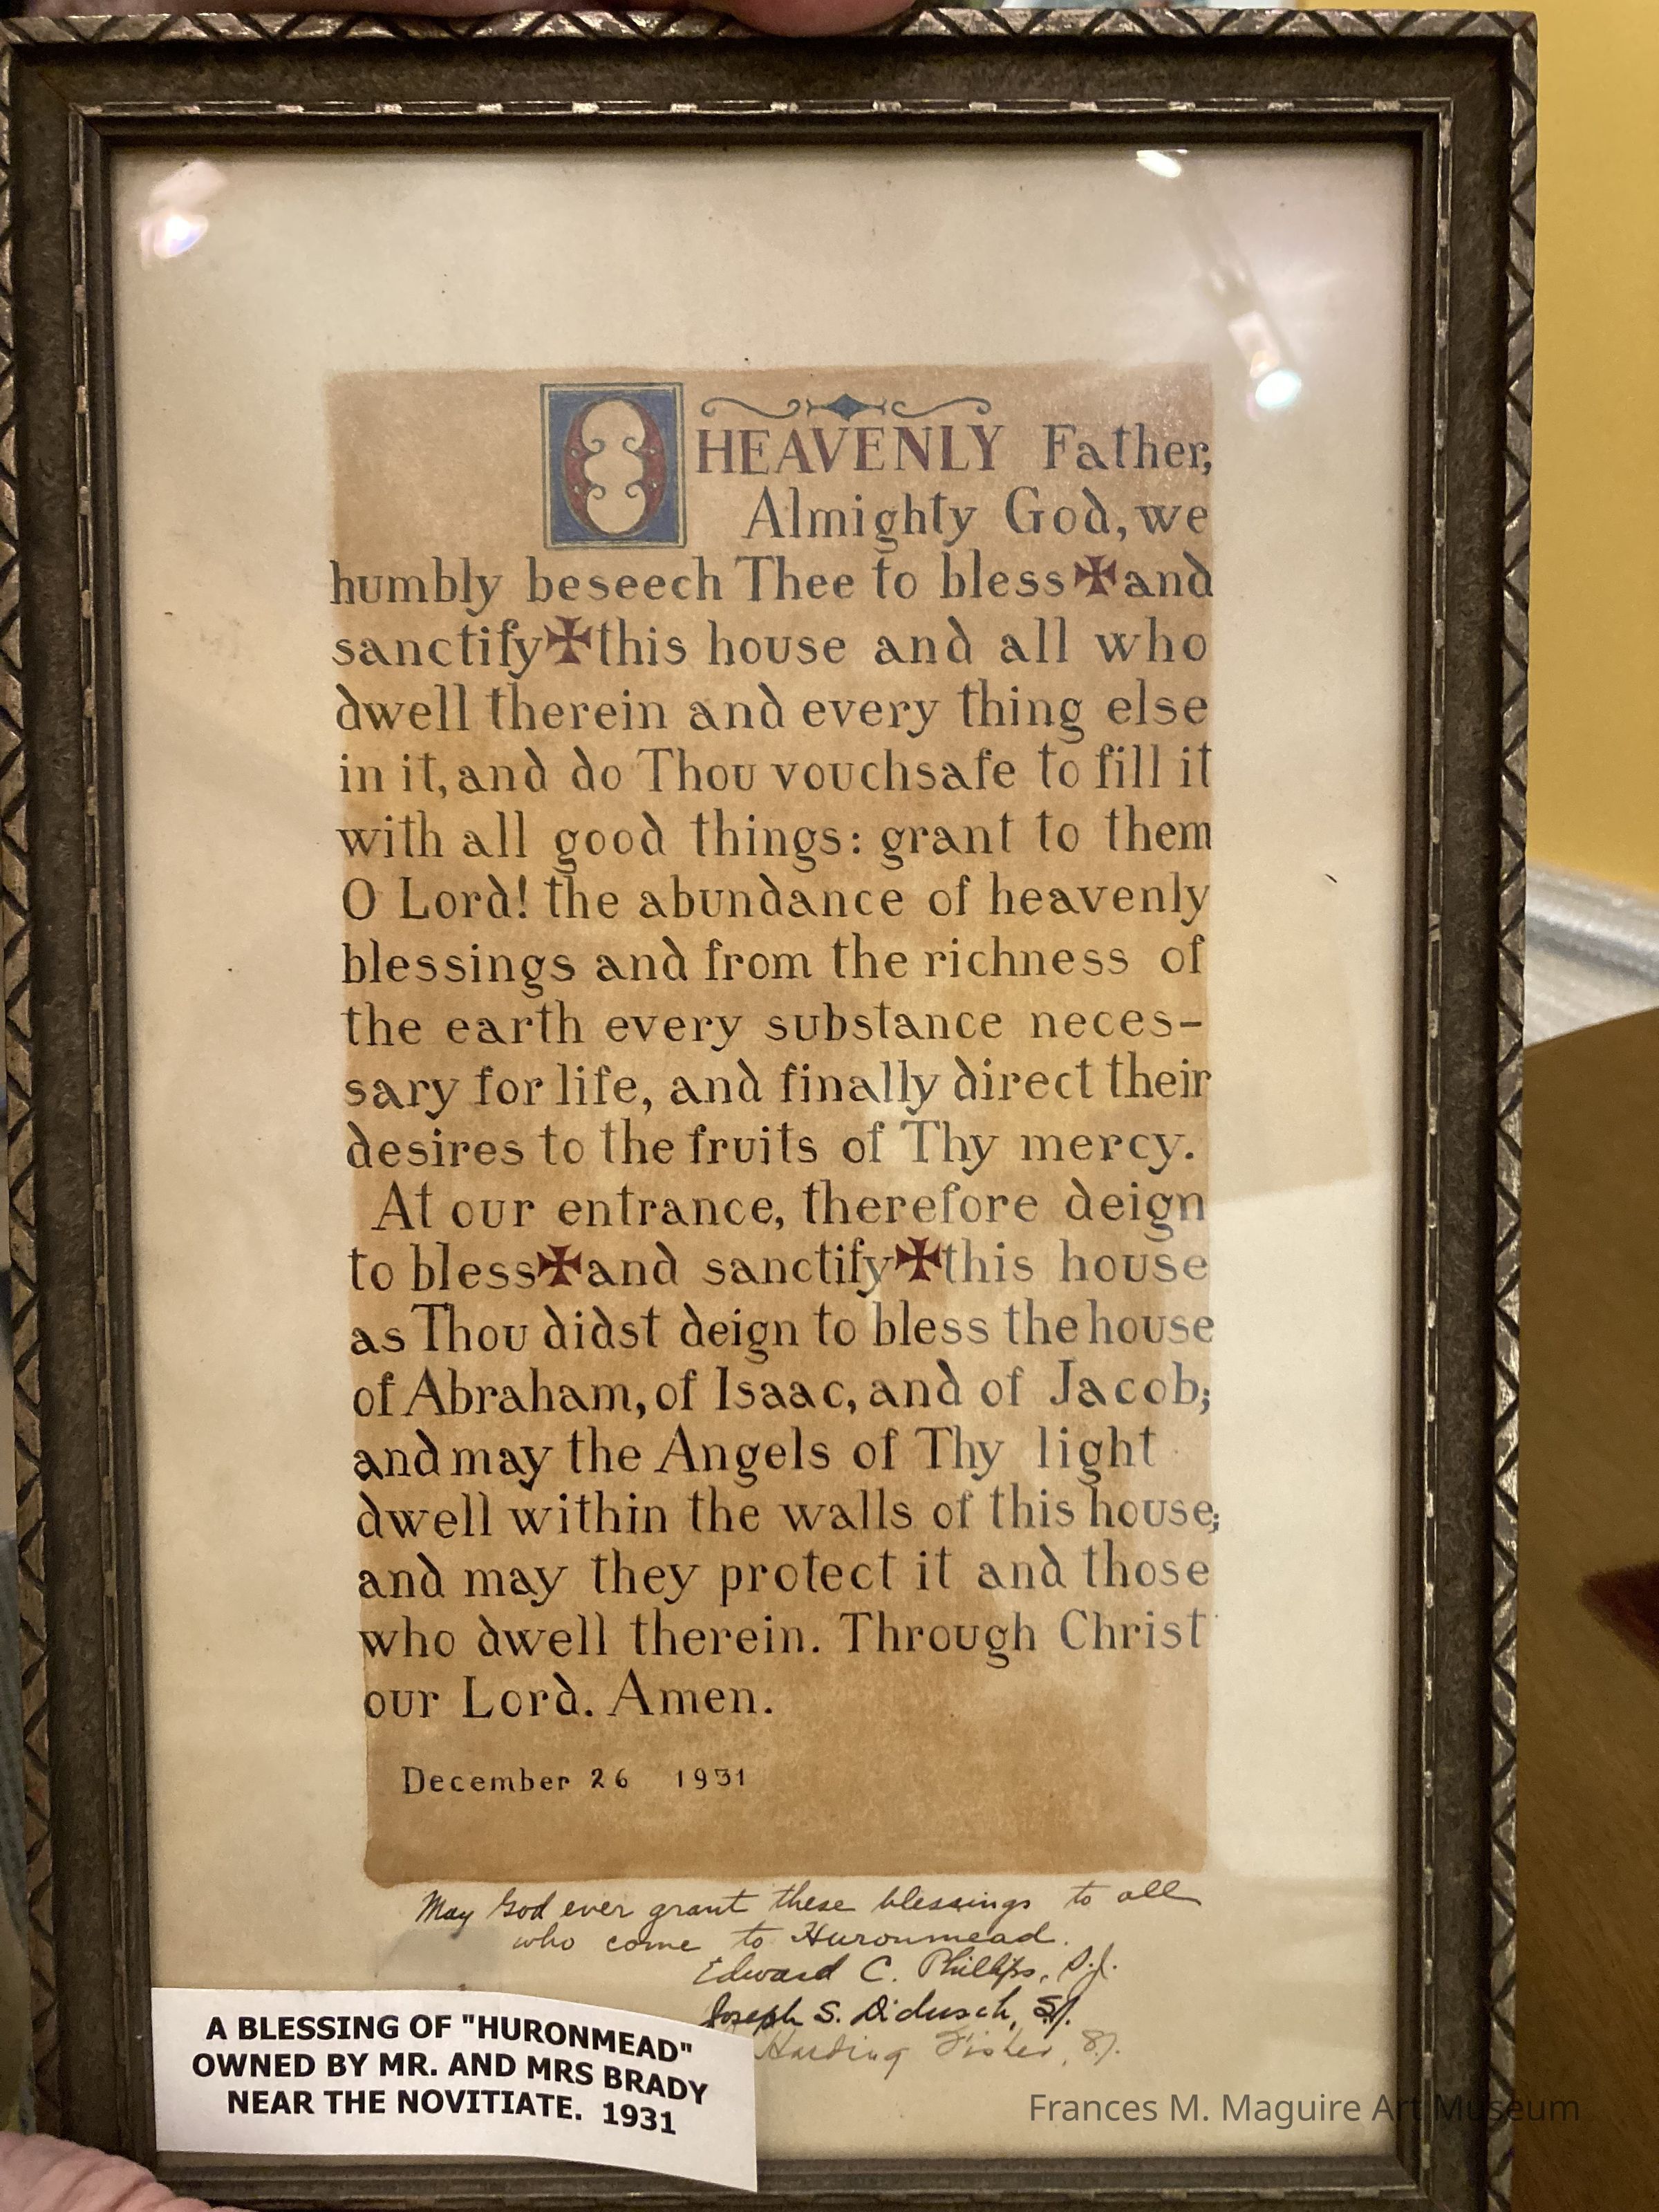 O HEAVENLY Father,
Almighty God, we
humbly beseech Thee to bless ✠ and
sanctify ✠ this house and all who
dwell therein and every thing else
in it, and do Thou vouchsafe to fill it
with all good things: grant to them
O Lord! the abundance of heavenly
blessings and from the richness of
the earth every substance neces-
sary for life, and finally direct their
desires to the fruits of Thy mercy.
At our entrance, therefore deign
to bless ✠ and sanctify ✠ this house
as Thou didst deign to bless the house
of Abraham, of Isaac, and of Jacob;
and may the Angels of Thy light
dwell within the walls of this house;
and may they protect it and those
who dwell therein. Through Christ
our Lord. Amen.
December 26 1931
May God ever grant these blessings to all
who come to Huronmead.
Edward C. Phillips, S.J.
Joseph S. Didusch, S.J.
Harding Fisher, S.J.
A BLESSING OF "HURONMEAD"
OWNED BY MR. AND MRS BRADY
NEAR THE NOVITIATE. 1931
Frances M. Maguire Art Museum